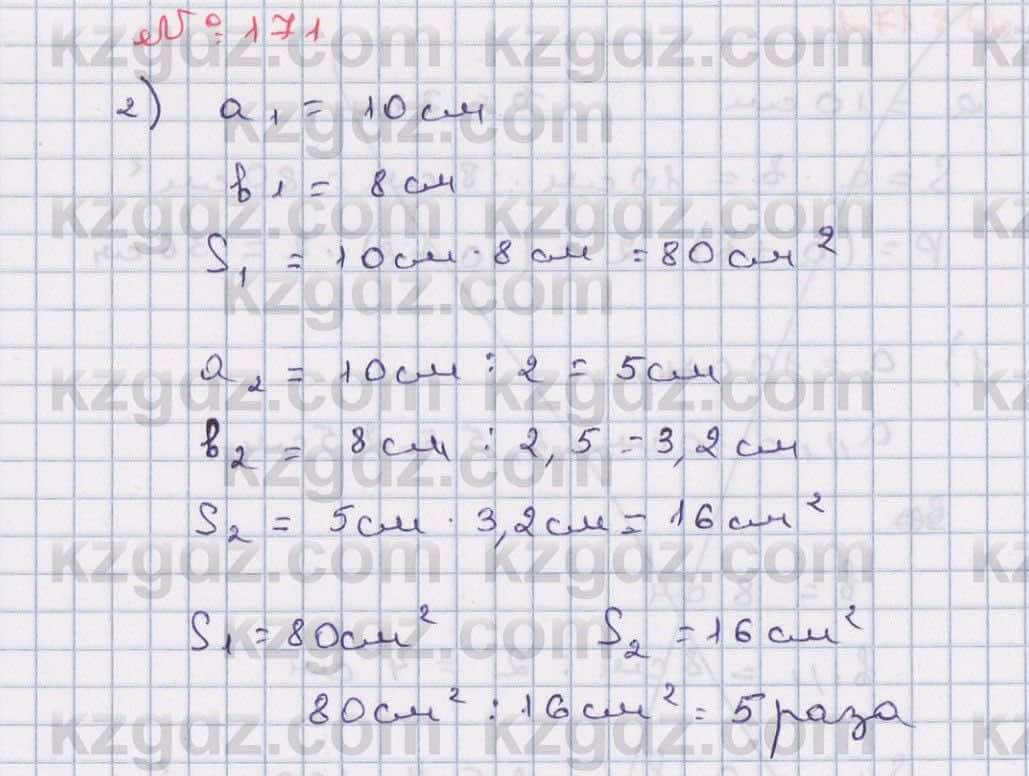 № 171
2) a₁ = 10 см
в₁ = 8 см
S₁ = 10 см · 8 см = 80 см²
a₂ = 10 см : 2 = 5 см
в₂ = 8 см : 2,5 = 3,2 см
S₂ = 5 см · 3,2 см = 16 см²
S₁ = 80 см² S₂ = 16 см²
80 см² : 16 см² = 5 раза
kzgdz.com